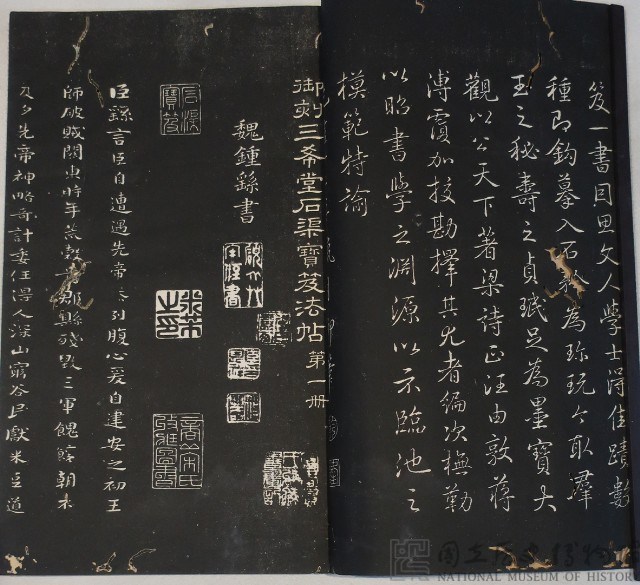 笈一書因思文人學士得佳蹟數
種即鈎摹入石矜為珍玩今取羣
玉之秘壽之貞珉足為墨寶大
觀以公天下著梁詩正汪由敦蔣
溥覆加挍勘擇其尤者編次撫勒
以昭書學之淵源以示臨池之
模範特諭
御刻三希堂石渠寶笈法帖第一冊
魏鍾繇書
石渠寶笈
米芾之印
臣繇言臣自遭遇先帝忝列腹心爰自建安之初王
師破賊關東時年荒穀貴郡縣殘毀三軍餽饟朝不
及夕先帝神略奇計委任得人深山窮谷民獻米豆道
國立歷史博物館
NATIONAL MUSEUM OF HISTOR